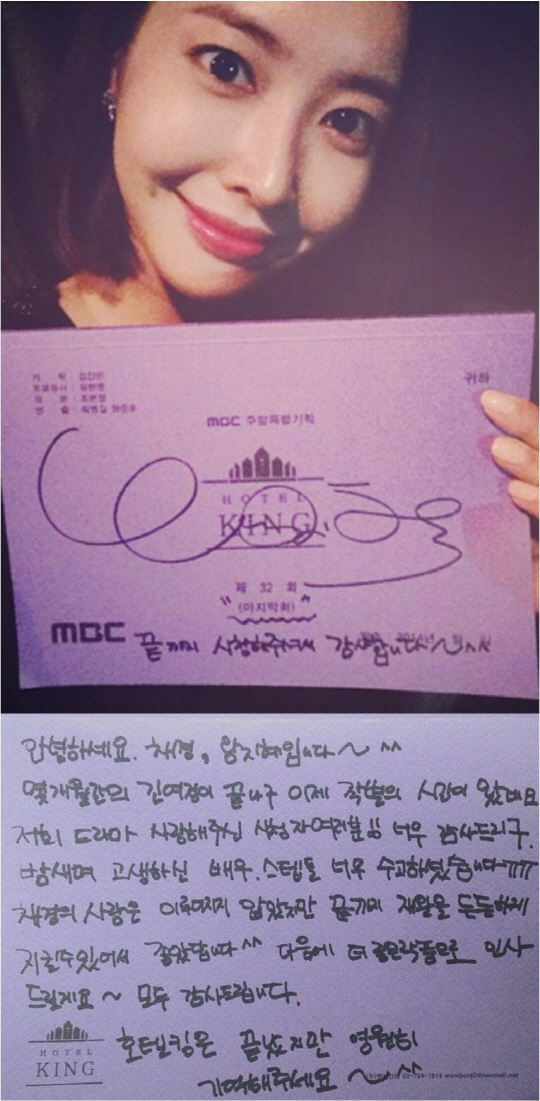 귀하
MBC 주말특별기획
HOTEL
KING
제 32 회
"(마지막회)"
MBC 끝까지 시청해주셔서 감사합니다~^^
안녕하세요. 채경, 왕지혜입니다~ ^^
몇개월간의 긴여정이 끝나구 이제 작별의 시간이 왔네요
저희 드라마 사랑해주신 시청자여러분!! 너무 감사드리구.
밤새며 고생하신 배우, 스텝들 너무 수고하셨습니다 ㅠㅠ
채경의 사랑은 이루어지지 않았지만 끝까지 재완을 든든하게
지킬수있어서 좋았답니다^^ 다음에 더 좋은작품으로 인사
드릴게요~ 모두 감사드립니다.
HOTEL
KING
호텔킹은 끝났지만 영원히
기억해주세요~ ^^